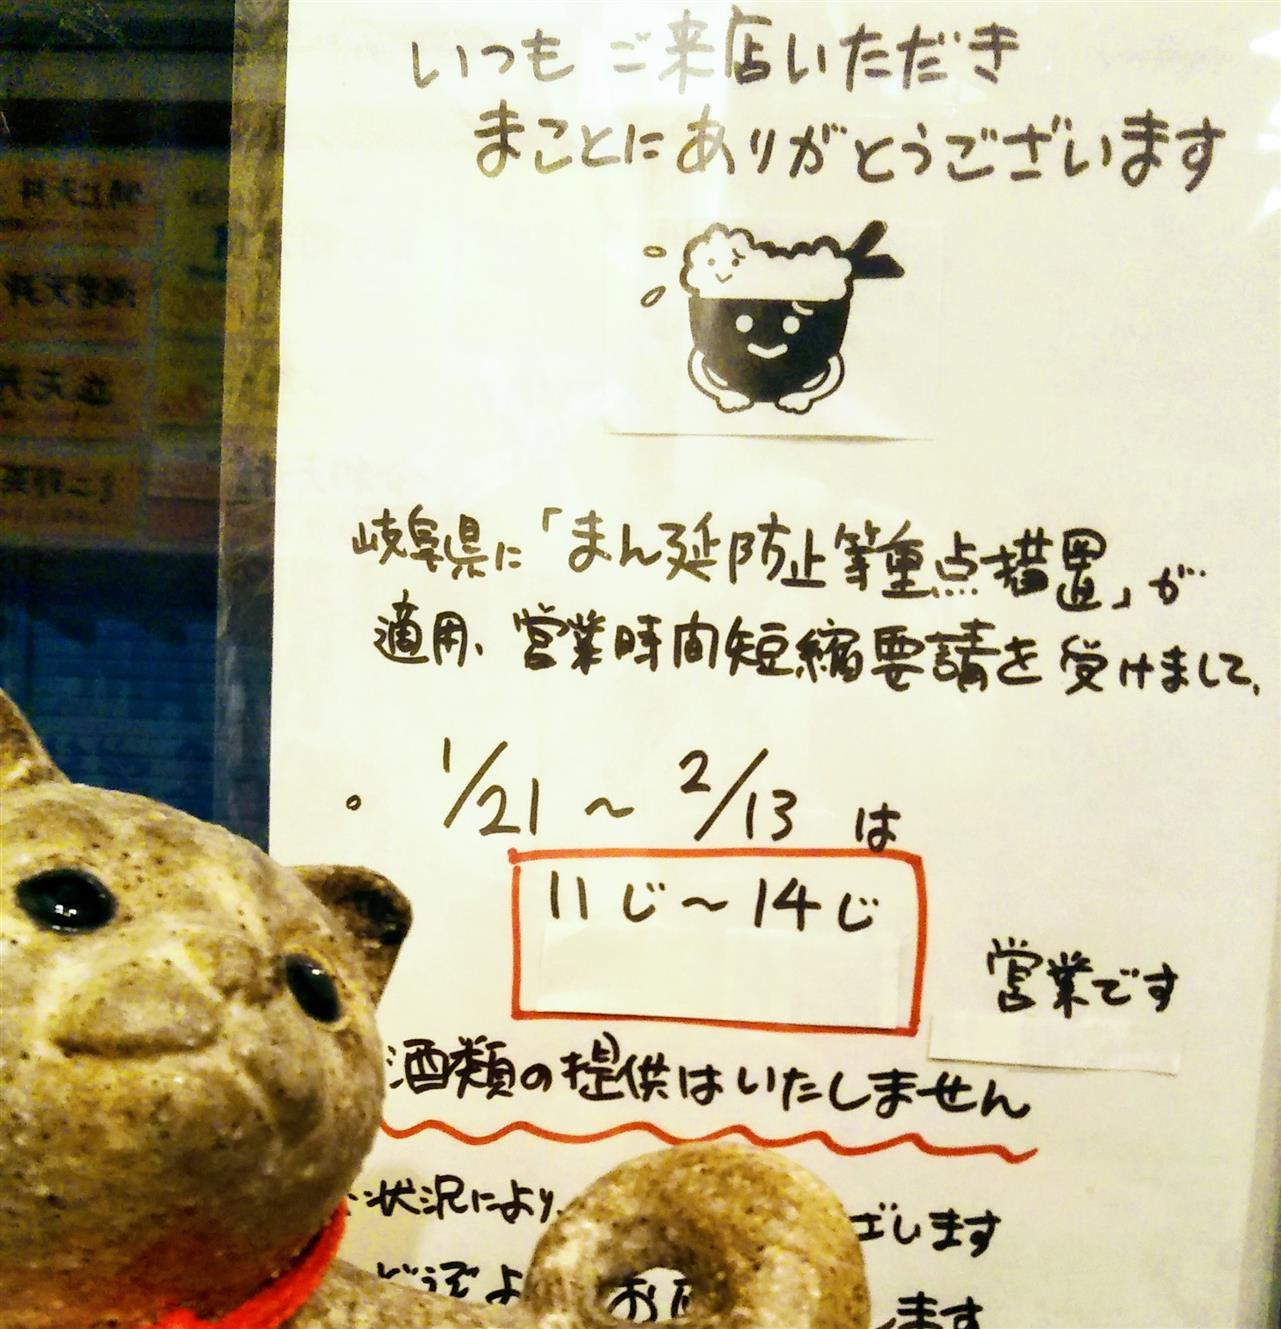 いつもご来店いただき
まことにありがとうございます
岐阜県に「まん延防止等重点措置」が
適用、営業時間短縮要請を受けまして、
1/21〜2/13は
11じ〜14じ
営業です
酒類の提供はいたしません
状況により
ざいます
どうぞよ
します